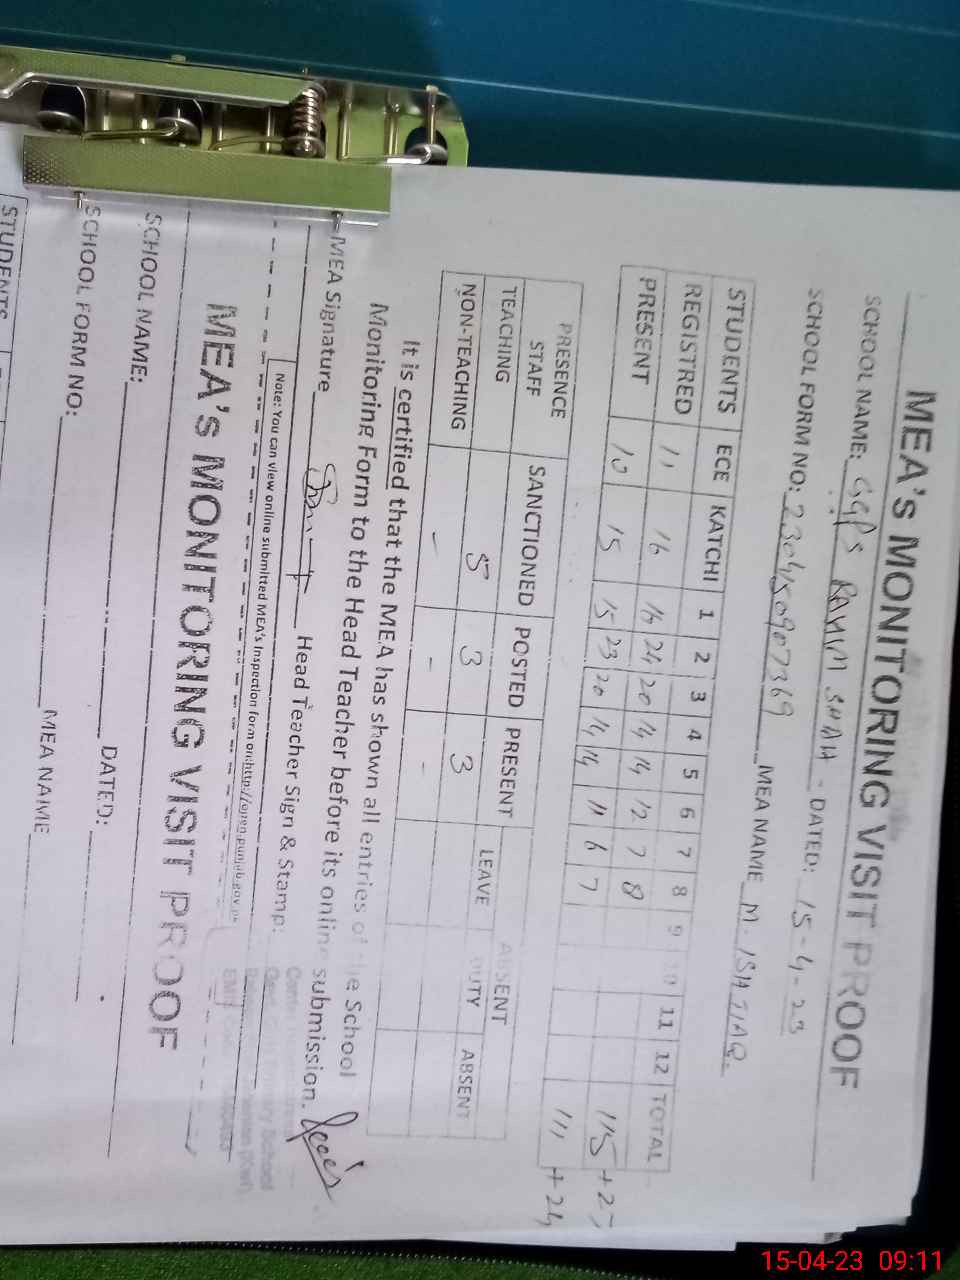 MEA's MONITORING VISIT PROOF
SCHOOL NAME: GGPS RAHIM SHAH - DATED: 15-4-23
SCHOOL FORM NO: 230450907369 MEA NAME M. ISHTIAQ.
STUDENTS ECE KATCHI 1 2 3 4 5 6 7 8 9 10 11 12 TOTAL
REGISTRED 11 16 16 24 20 14 14 12 7 8 115 +27
PRESENT 10 15 15 23 20 14 14 11 6 7 111 +24
PRESENCE ABSENT
STAFF SANCTIONED POSTED PRESENT LEAVE DUTY ABSENT
TEACHING 5 3 3
NON-TEACHING - - -
It is certified that the MEA has shown all entries of the School
Monitoring Form to the Head Teacher before its online submission.
MEA Signature Head Teacher Sign & Stamp:
Note: You can view online submitted MEA's Inspection form on:http://open.punjab.gov.pk
MEA's MONITORING VISIT PROOF
SCHOOL NAME: DATED:
SCHOOL FORM NO: MEA NAME
STUDENTS
15-04-23 09:11